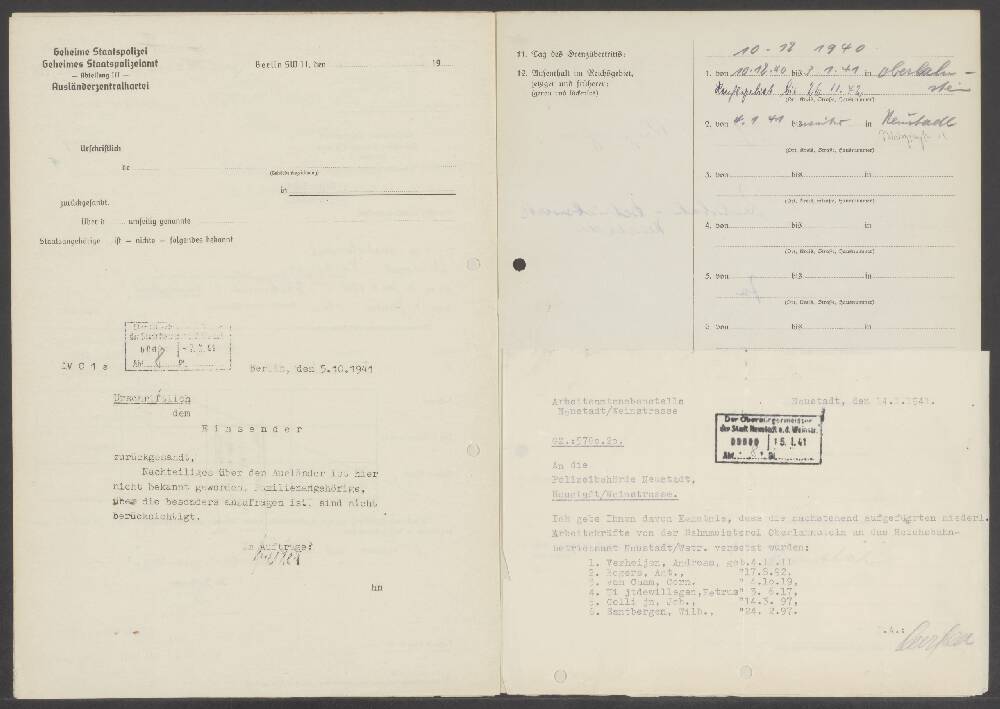 Geheime Staatspolizei
Geheimes Staatspolizeiamt
— Abteilung III —
Ausländerzentralkartei
Berlin SW 11, den 19
Urschriftlich
de
(Behördenbezeichnung)
in
zurückgesandt.
Über umseitig genannte
Staatsangehörige ist — nichts — folgendes bekannt
8
IV C 1 a
Berlin, den 5.10.1941
Urschriftlich
dem
Einsender
zurückgesandt.
Nachteiliges über den Ausländer ist hier
nicht bekannt geworden. Familienangehörige,
über die besonders anzufragen ist, sind nicht
berücksichtigt.
Im Auftrage:
hn
11. Tag des Grenzübertritts:
10-12 1940
12. Aufenthalt im Reichsgebiet,
jetziger und früherer:
(genau und lückenlos)
1. von 10.12.40 bis 3 1.41 in Oberlahn-
stein
bis 26.11.42
(Ort, Kreis, Straße, Hausnummer)
2. von 4.1 41 bis in Neustadt
(Ort, Kreis, Straße, Hausnummer)
3. von bis in
(Ort, Kreis, Straße, Hausnummer)
4. von bis in
(Ort, Kreis, Straße, Hausnummer)
5. von bis in
(Ort, Kreis, Straße, Hausnummer)
6. von bis in
Arbeitsamtsnebenstelle
Neustadt/Weinstrasse
Neustadt, den 14.1.1941.
Der Oberbürgermeister
der Stadt Neustadt a.d. Weinstr.
00000 15.1.41
Abt. 8 Bl.
GZ.:5780.25.
An die
Polizeibehörde Neustadt,
Neustadt/Weinstrasse.
Ich gebe Ihnen davon Kenntnis, dass die nachstehend aufgeführten niederl.
Arbeitskräfte von der Bahnmeisterei Oberlahnstein an das Reichsbahn-
betriebsamt Neustadt/Wstr. versetzt wurden:
1. Verheijen, Andreas, geb.4.12.11
2. Rogers, Ant., "17.8.92,
3. van Cuam, Corn. " 4.10.19,
4. jtdewillegen, Petrus" 3. 6.17,
5. Colli jn, Joh., "14.3. 97,
6. Santbergen, Wilh., "24. 2.97.
I.A.: